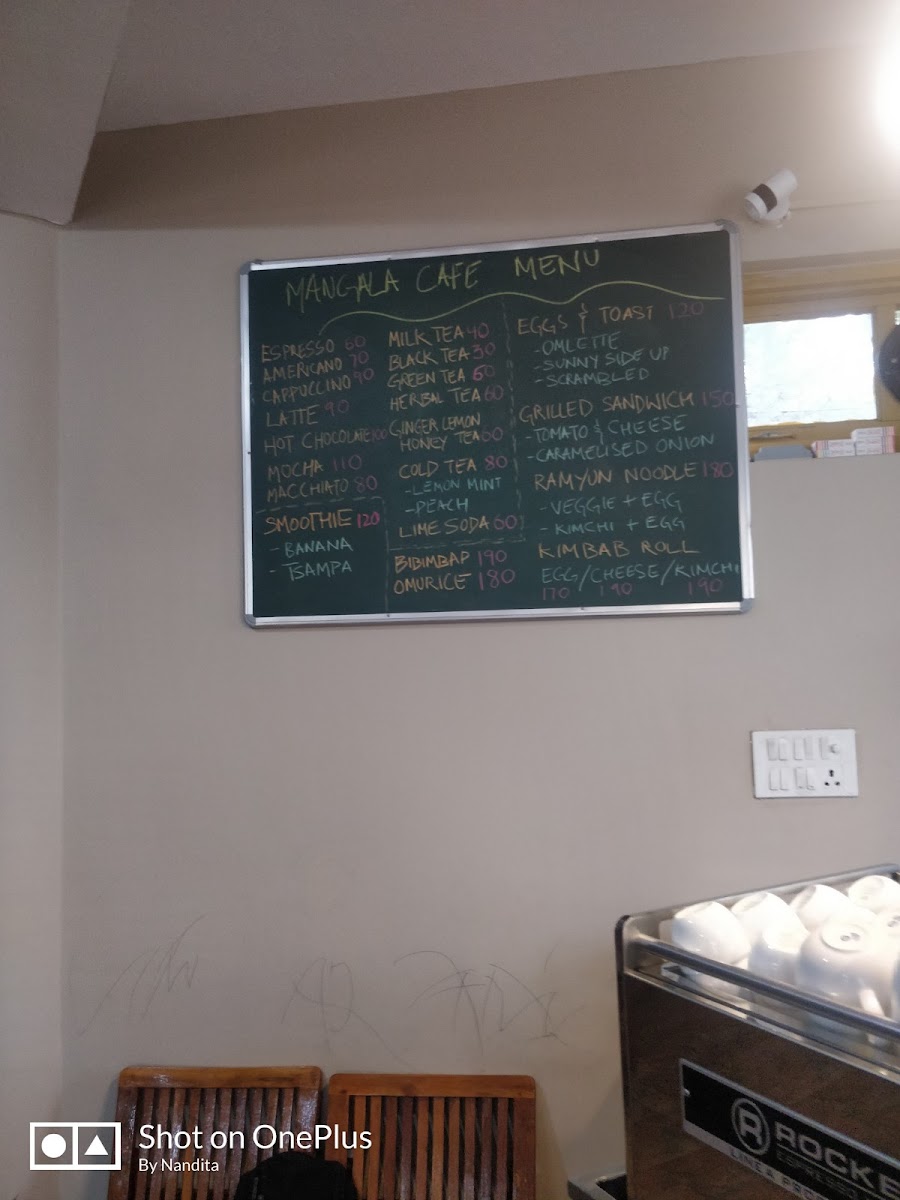 MANGALA CAFE MENU
ESPRESSO 60
AMERICANO 70
CAPPUCCINO 90
LATTE 90
HOT CHOCOLATE 100
MOCHA 110
MACCHIATO 80
SMOOTHIE 120
- BANANA
- TSAMPA
MILK TEA 40
BLACK TEA 30
GREEN TEA 60
HERBAL TEA 60
GINGER LEMON
HONEY TEA 60
COLD TEA 80
- LEMON MINT
- PEACH
LIME SODA 60
BIBIMBAP 190
OMURICE 180
EGGS & TOAST 120
- OMLETTE
- SUNNY SIDE UP
- SCRAMBLED
GRILLED SANDWICH 150
- TOMATO & CHEESE
- CARAMELISED ONION
RAMYUN NOODLE 180
- VEGGIE + EGG
- KIMCHI + EGG
KIMBAB ROLL
EGG/CHEESE/KIMCHI
170 190 190
R ROCKE
ESPRESSO
Shot on OnePlus
By Nandita